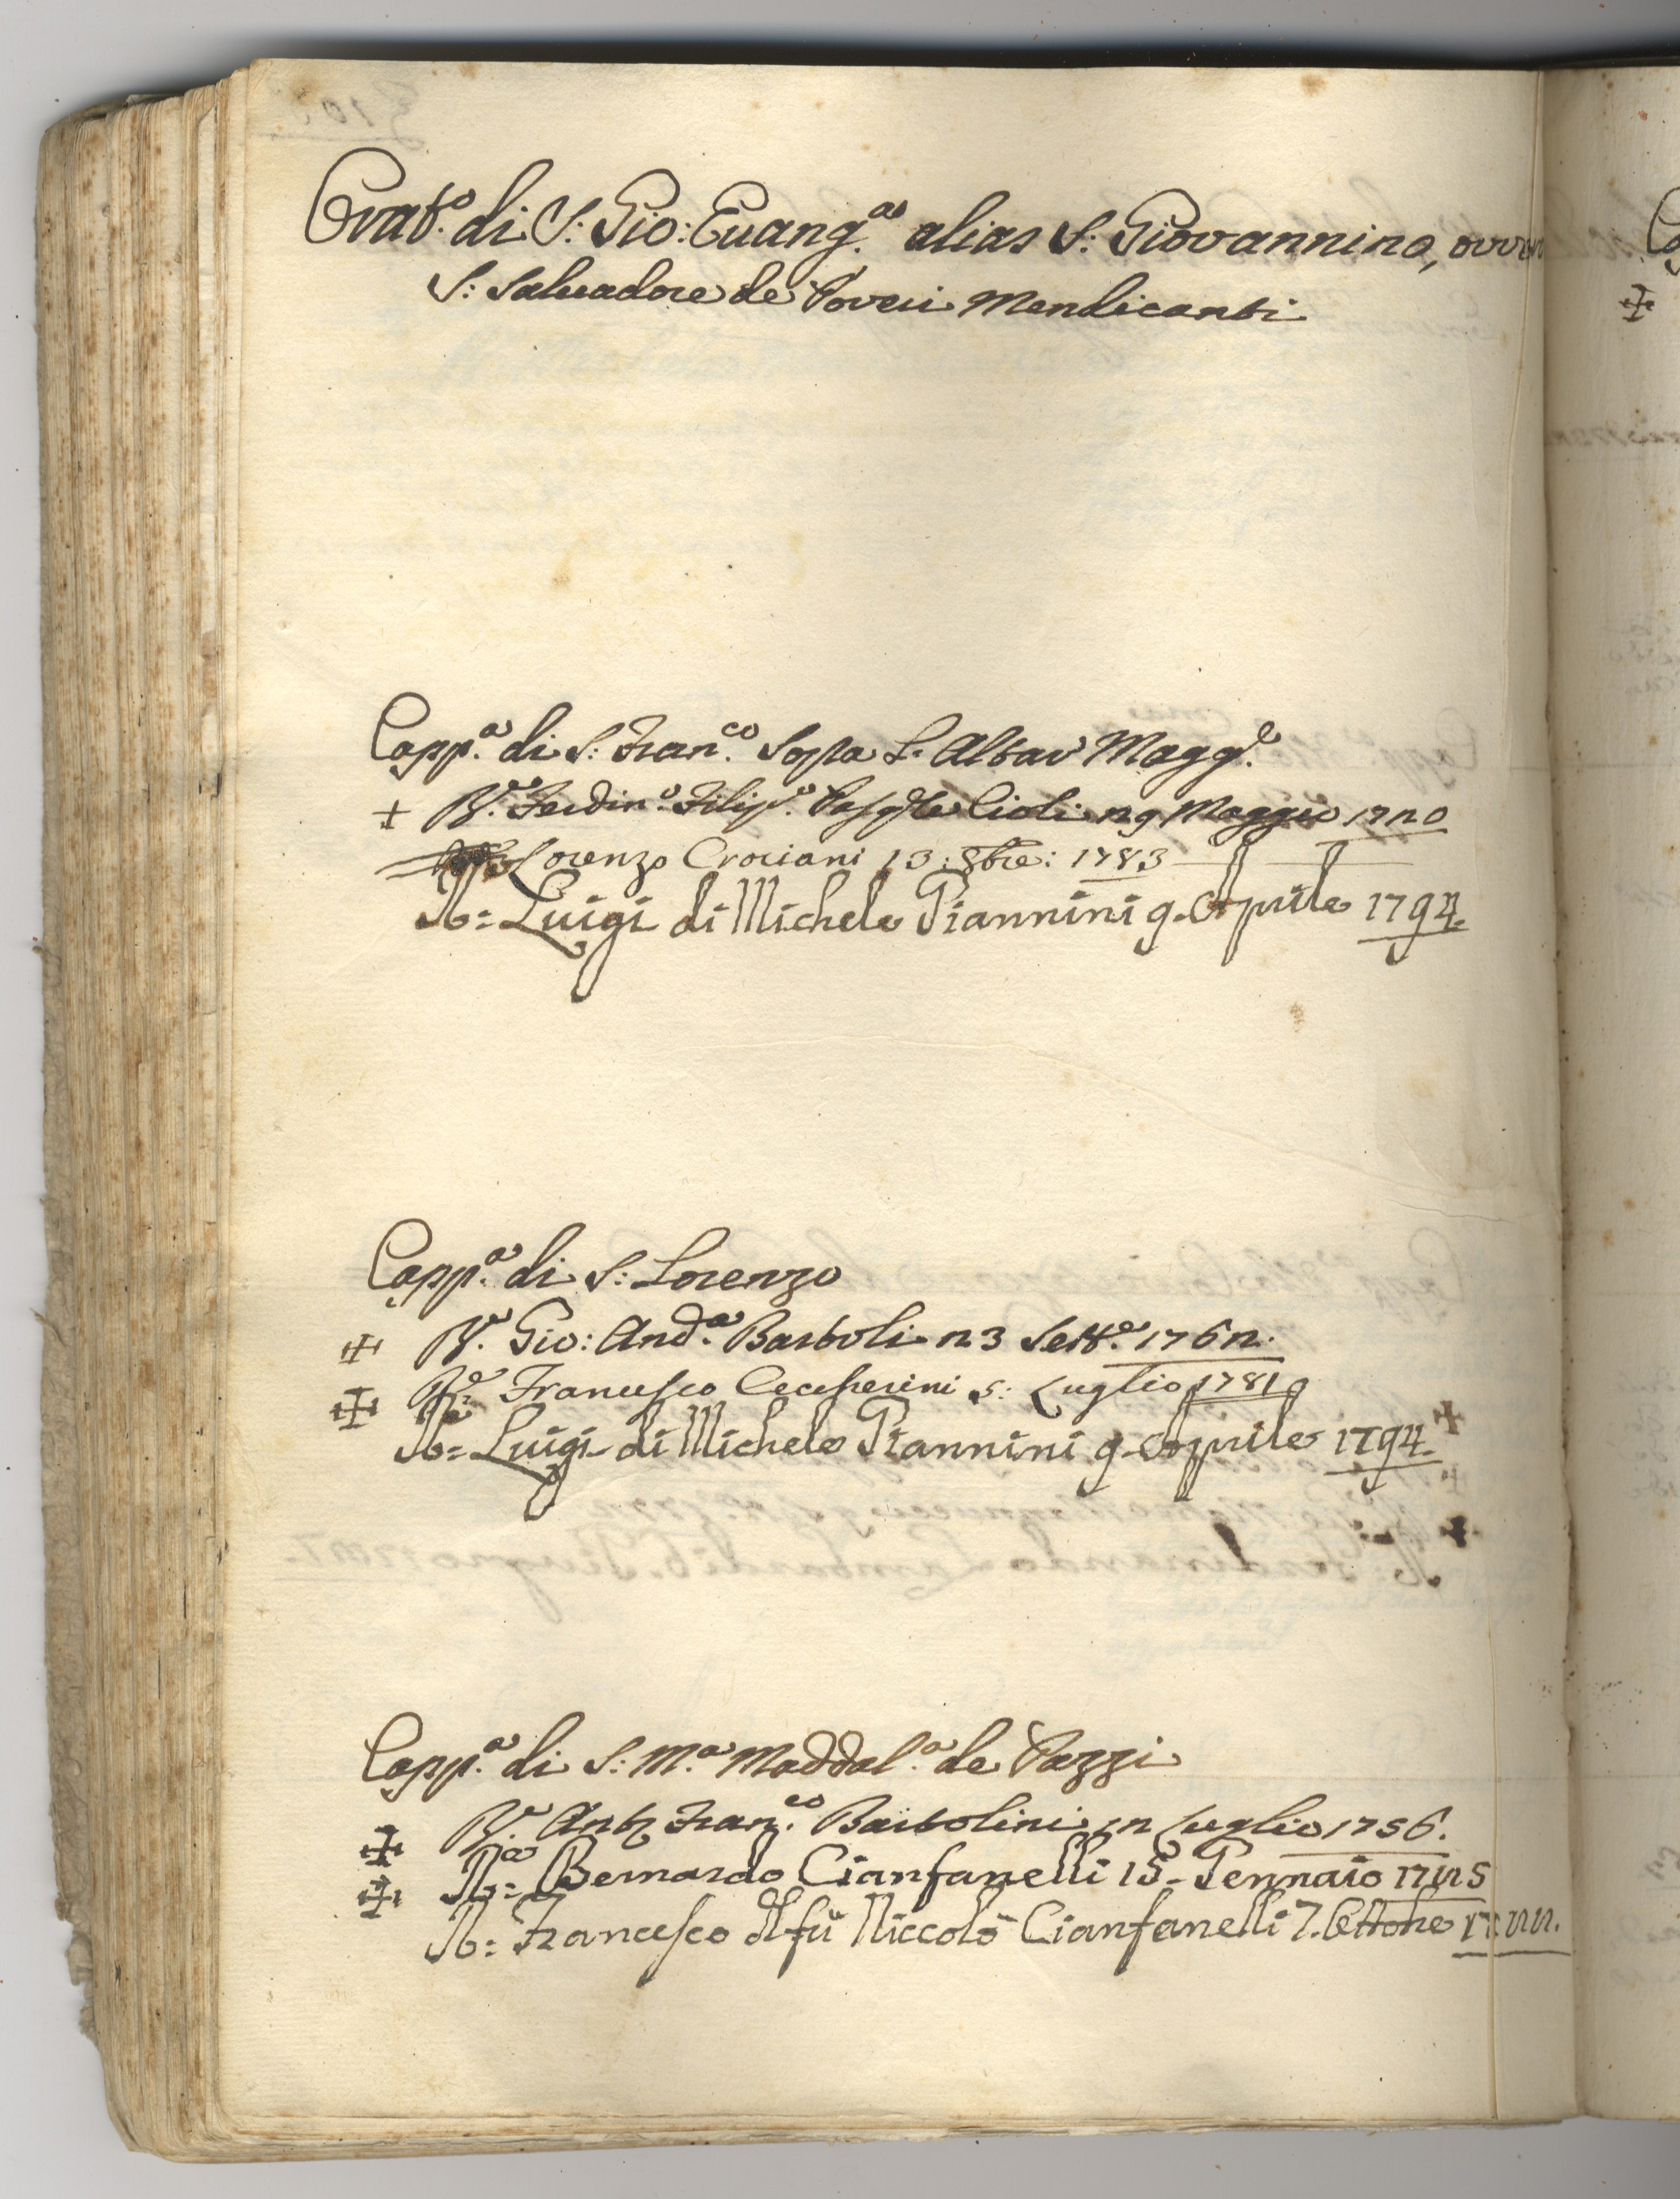 Orat.o di S: Gio: Euang.a alias S: Giovannino, ovver
S: Salvadore de Poveri Mendicanti
Capp.a di S: Fran.co Sopra L'Altar Magg.e
+ R.e Ferdin.o Filip.o Cioli 29 Maggio 1720
Lorenzo Crociani 13: 8bre: 1783
R: Luigi di Michele Giannini 9. Aprile 1794.
Capp.a di S: Lorenzo
R.e Gio: And.a Bartoli 23 Sett.e 1762.
R.e Francesco Ceccherini 5: Luglio 1781
R: Luigi di Michele Giannini 9. Aprile 1794.
Capp.a di S: M.a Maddal.a de Pazzi
R.e Ant. Fran.co Bartolini 12 Luglio 1756.
R: Bernardo Cianfanelli 15. Gennaio
R: Francesco del fù Niccolò Cianfanelli 7. Ottobre